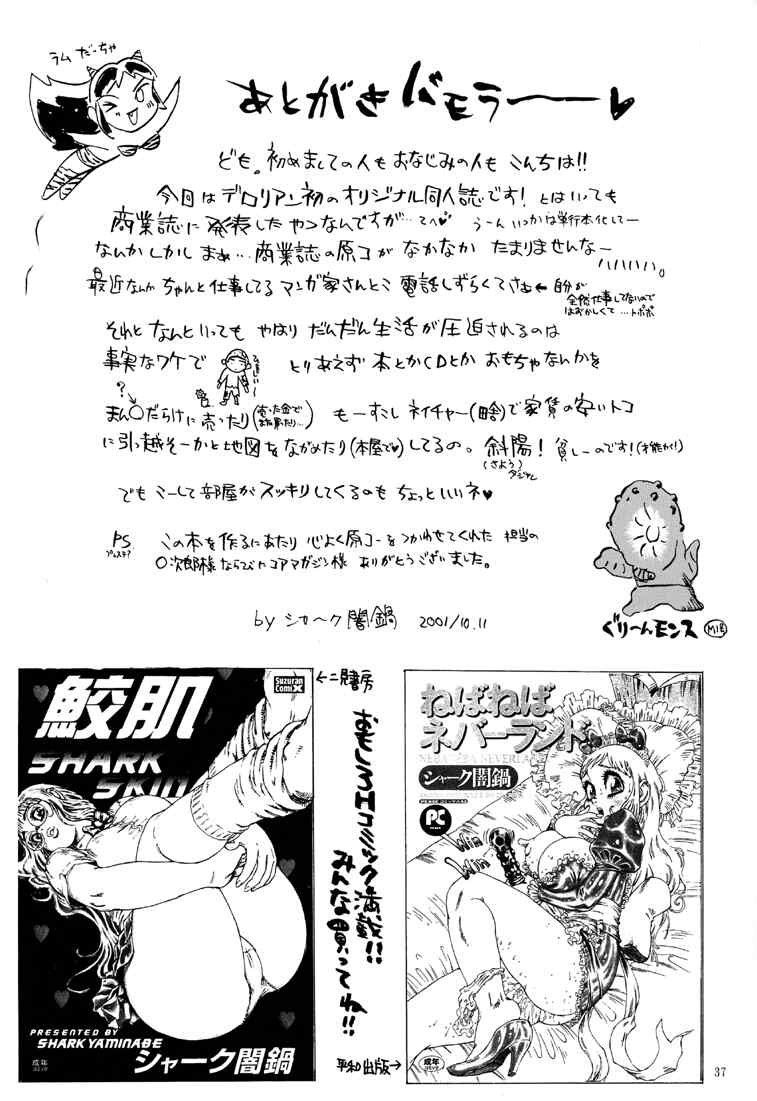 ラムだっちゃ
あとがきバモラーー♥
ども。初めましての人もおなじみの人も こんちは!!
今回はデロリアン初のオリジナル同人誌です! とはいっても
商業誌に発表したやつなんですが…てへ♥ うーん いつかは単行本化してー
なんか しかし まぁ…商業誌の原コが なかなか たまりませんなー
ハハハハハ。
最近なんか ちゃんと仕事してる マンガ家さんとこ 電話しずらくてさぁ ← 自分が
全然仕事してないので
はずかしくて…トホホ
それと なんといっても やはり だんだん生活が圧迫されるのは
事実なワケで とりあえず 本とかCDとか おもちゃなんかを
?
まん〇だらけに売ったり(売った金で
また買ったり…) もーすこし ネイチャー(略)で家賃の安いトコ
に引っ越そーかと地図をながめたり(本屋で♥)してるの。 斜陽! 貧しーのです!(才能が!)
(さよう)
でもこーして部屋がスッキリしてくるのも ちょっといいネ♥
PS この本を作るにあたり 心よく原コーをつかわせてくれた 担当の
プレステ?
〇次郎様ならびにコアマガジン様 ありがとうございました。
by シャーク闇鍋 2001/10.11
ぐりーんモンス
鮫肌
SHARK
SKIN
Suzuran
ComiX
PRESENTED BY
SHARK YAMINABE
成年
コミック
シャーク闇鍋
←二見書房
おもしろHコミック満載!!
みんな買ってね!!
平和出版→
ねばねば
ネバーランド
NEBA NEBA NEVERLAND
シャーク闇鍋
PC
Win
Win
成年
コミック
37